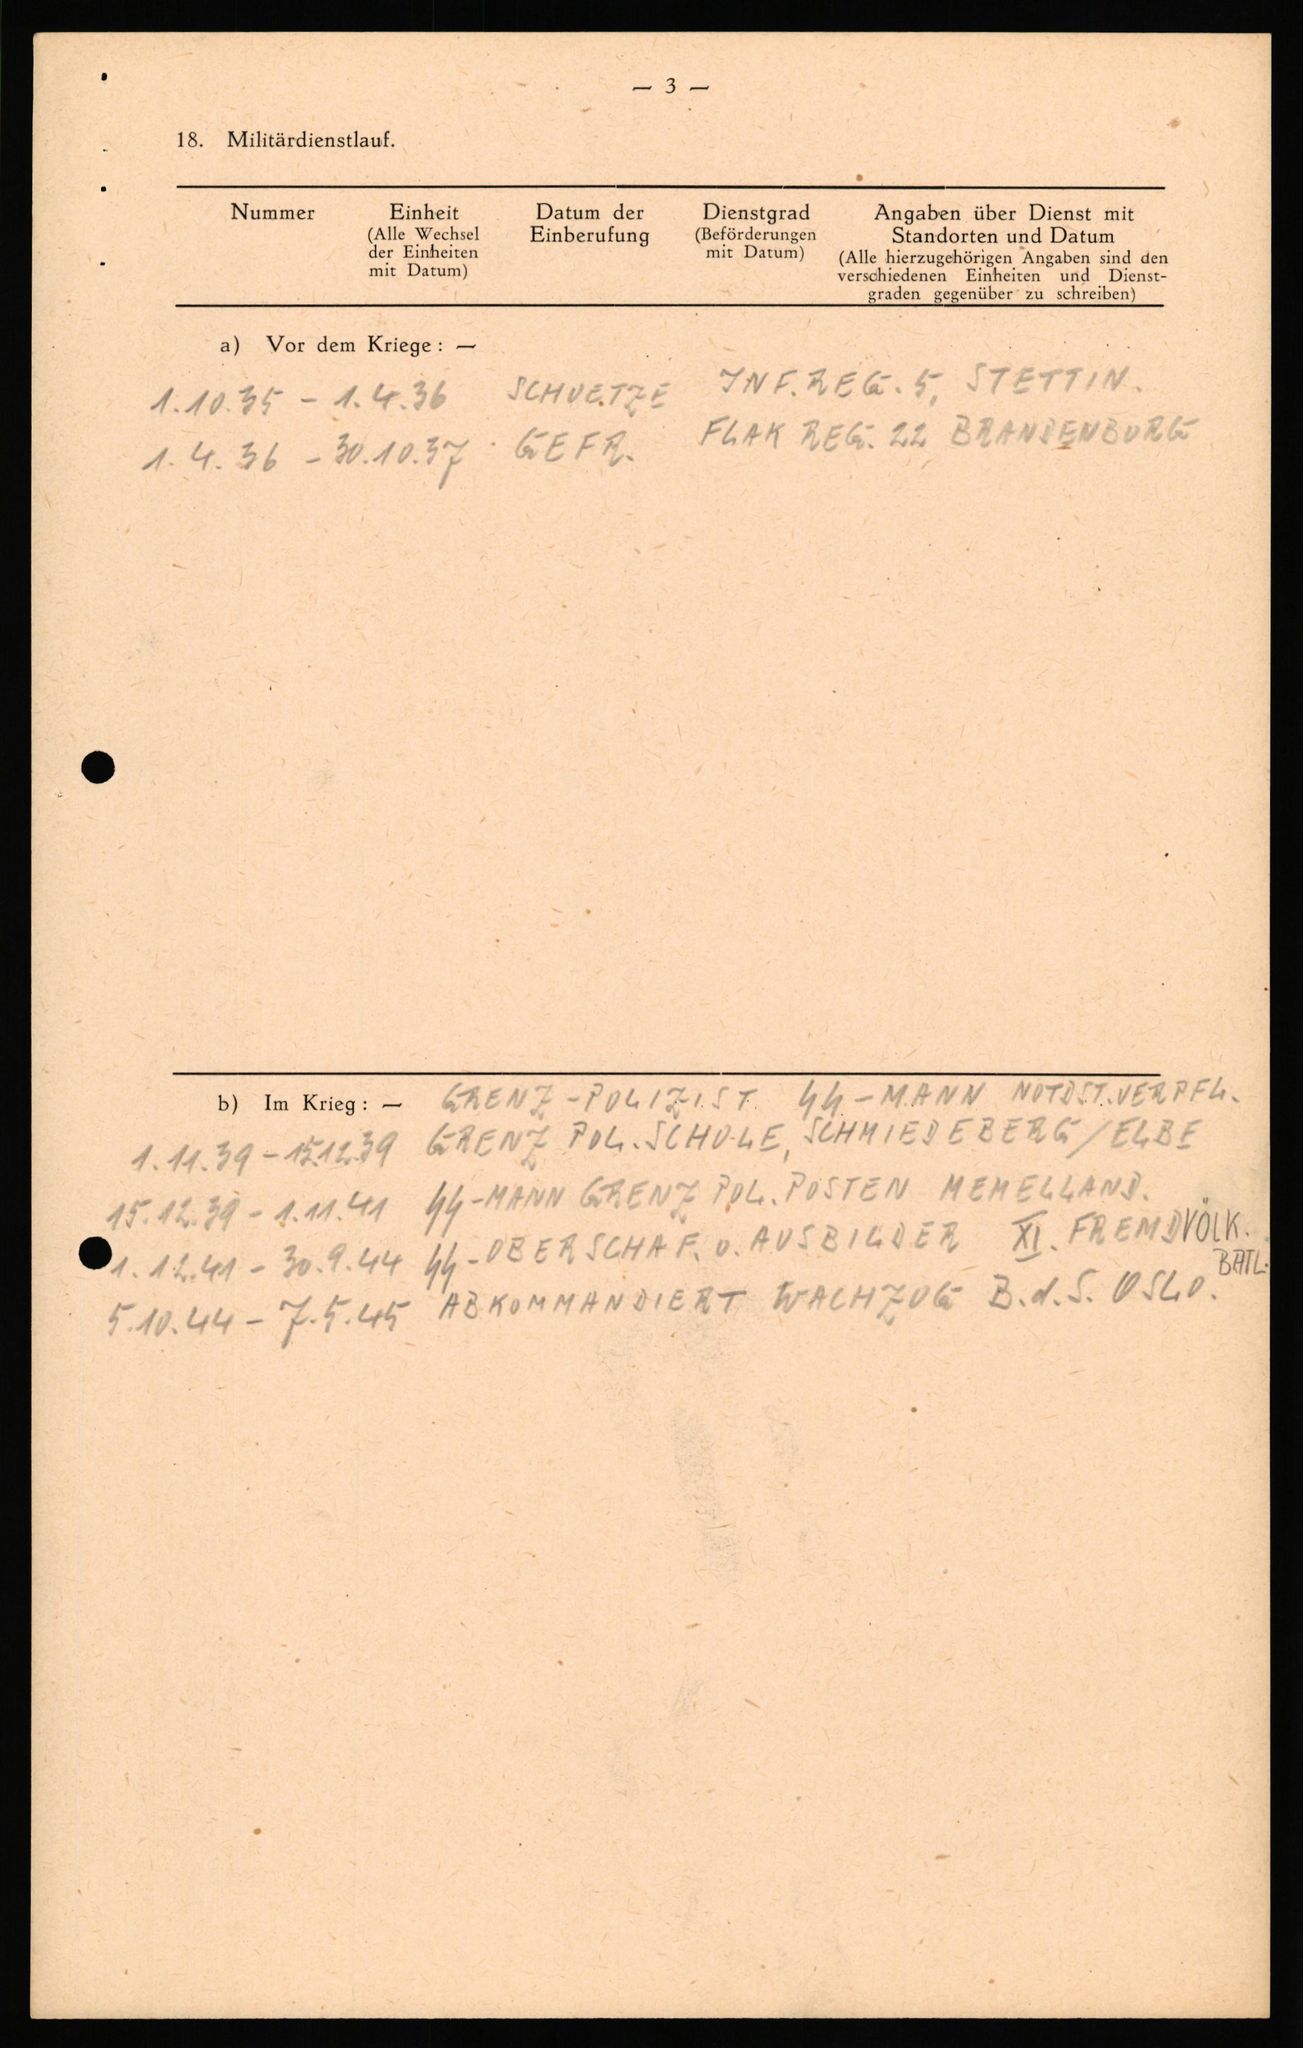 — 3 —
18. Militärdienstlauf.
Nummer
Einheit
(Alle Wechsel
der Einheiten
mit Datum)
Datum der
Einberufung
Dienstgrad
(Beförderungen
mit Datum)
Angaben über Dienst mit
Standorten und Datum
(Alle hierzugehörigen Angaben sind den
verschiedenen Einheiten und Dienst-
graden gegenüber zu schreiben)
a) Vor dem Kriege: —
1.10.35 - 1.4.36 SCHUETZE INF. REG. 5, STETTIN.
1.4.36 - 30.10.37 GEFR. FLAK REG. 22 BRANDENBURG
b) Im Krieg: — GRENZ-POLIZIST SS-MANN NOTDST. VERPFL.
1.11.39 - 15.12.39 GRENZ POL. SCHULE, SCHMIEDEBERG/ELBE
15.12.39 - 1.11.41 SS-MANN GRENZ POL. POSTEN MEMELLAND.
1.12.41 - 30.9.44 SS-OBERSCHAF. U. AUSBILDER XI. FREMDVÖLK.
BATL.
5.10.44 - 7.5.45 ABKOMMANDIERT WACHZUG B.d.S. OSLO.